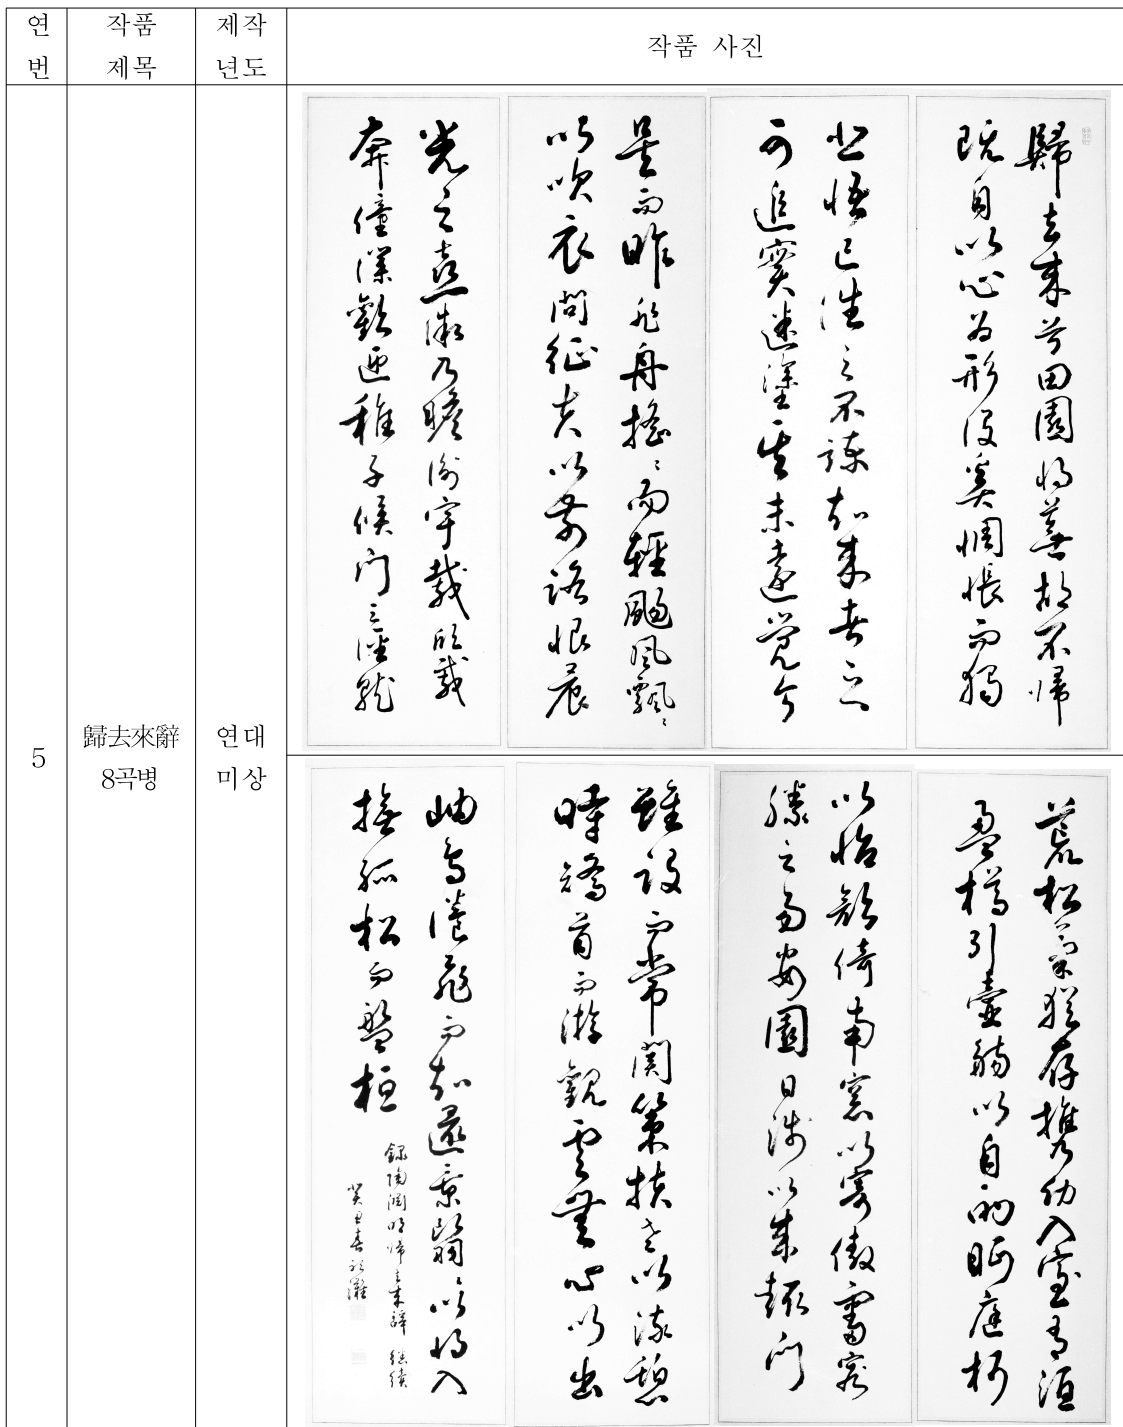 연번
작품제목
제작년도
작품 사진
5
歸去來辭
8곡병
연대
미상
歸去來兮田園將蕪胡不帰
既自以心為形役奚惆悵而獨
悲悟已往之不諫知來者之
可追實迷塗其未遠覺今
是而昨非舟搖〻而輕颺風飄〻
以吹衣問征夫以前路恨晨
光之熹微乃瞻衡宇載欣載
奔僮僕歡迎稚子候門三徑就
荒松菊猶存携幼入室有酒
盈樽引壺觴以自酌眄庭柯
以怡顔倚南窓以寄傲審容
膝之易安園日涉以成趣門
雖設而常関策扶老以流憩
時矯首而游觀雲無心以出
岫鳥倦飛而知還景翳〻以將入
撫孤松而盤桓
録陶淵明帰去來辭
癸丑春